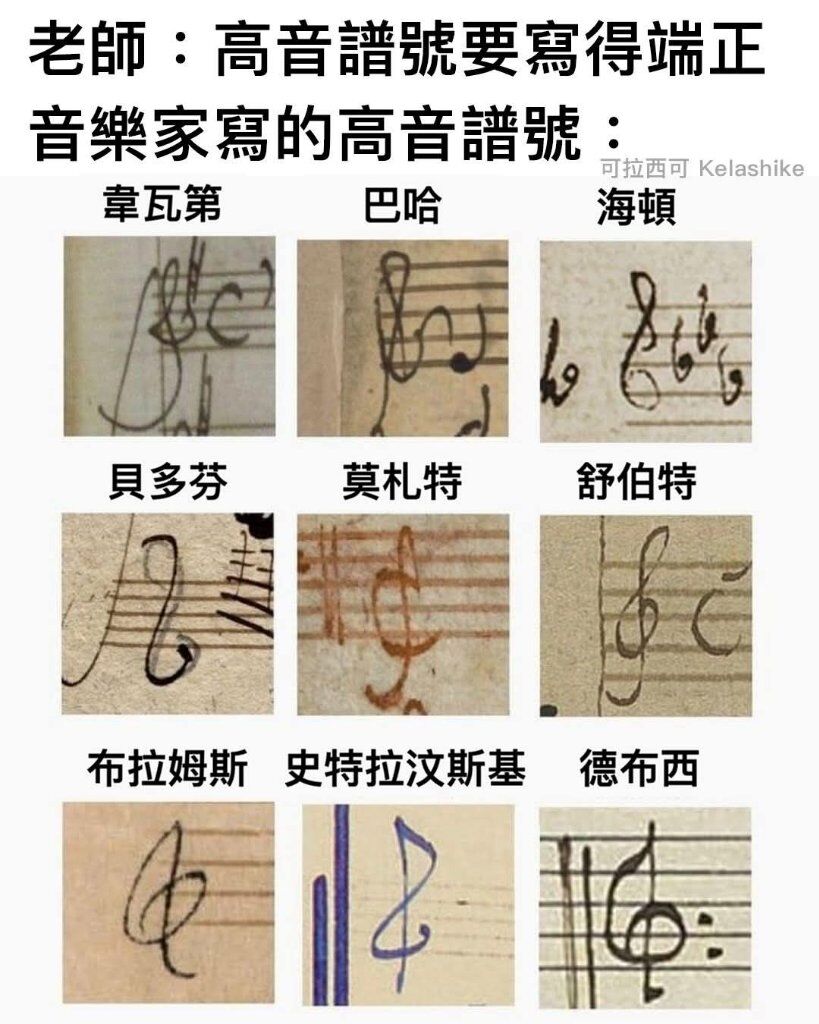 老師：高音譜號要寫得端正
音樂家寫的高音譜號：
可拉西可 Kelashike
韋瓦第 巴哈 海頓
貝多芬 莫札特 舒伯特
布拉姆斯 史特拉汶斯基 德布西